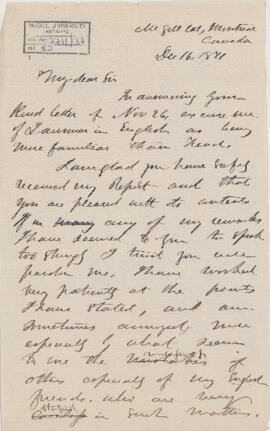 McGILL UNIVERSITY
ARCHIVES
ACC. NO. 2211/37
REF. 82
McGill Col, Montreal
Canada
Dec 16, 1871
My dear Sir
In answering your
kind letter of Nov 26, excuse me
if I answer in English as being
more familiar than French.
I am glad you have safely
received my Report and that
you are pleased with its contents
If in many any of my remarks
I have seemed to you to speak
too strongly I trust you will
pardon me. I have worked
very patiently at the points
I have stated, and am
sometimes annoyed more
especially by what seem
to me the of
others especially of my English
friends. who are very
in such matters.